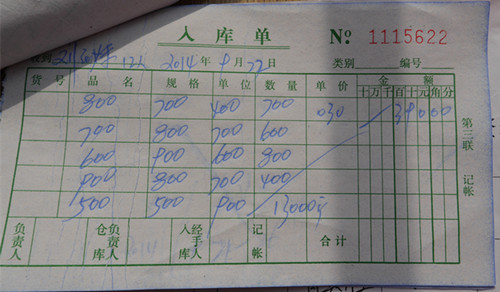 入库单 Nº 1115622
2014年9月22日 类别 编号
货号 品名 规格 单位 数量 单价 金额
十万千百十元角分
800 700 400 700 030 39000
700 800 700 600
600 900 600 800
900 800 700 400
500 500 900 13000
第三联 记帐
负责人 仓库负责人 入库经手人 记帐 合计